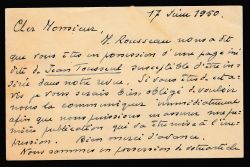 17 Juin 1950.
Cher Monsieur,
M. Rousseau nous a dit
que vous êtes en possession d'une page iné-
dite de Jean Tousseul susceptible d'être in-
sérée dans notre revue. Si vous êtes d'ac-
cord je vous serais bien obligé de vouloir
nous la communiquer immédiatement
afin que nous puissions en assurer la
première publication qui va être mise à l'im-
pression. Bien merci d'avance.
Nous sommes en possession de